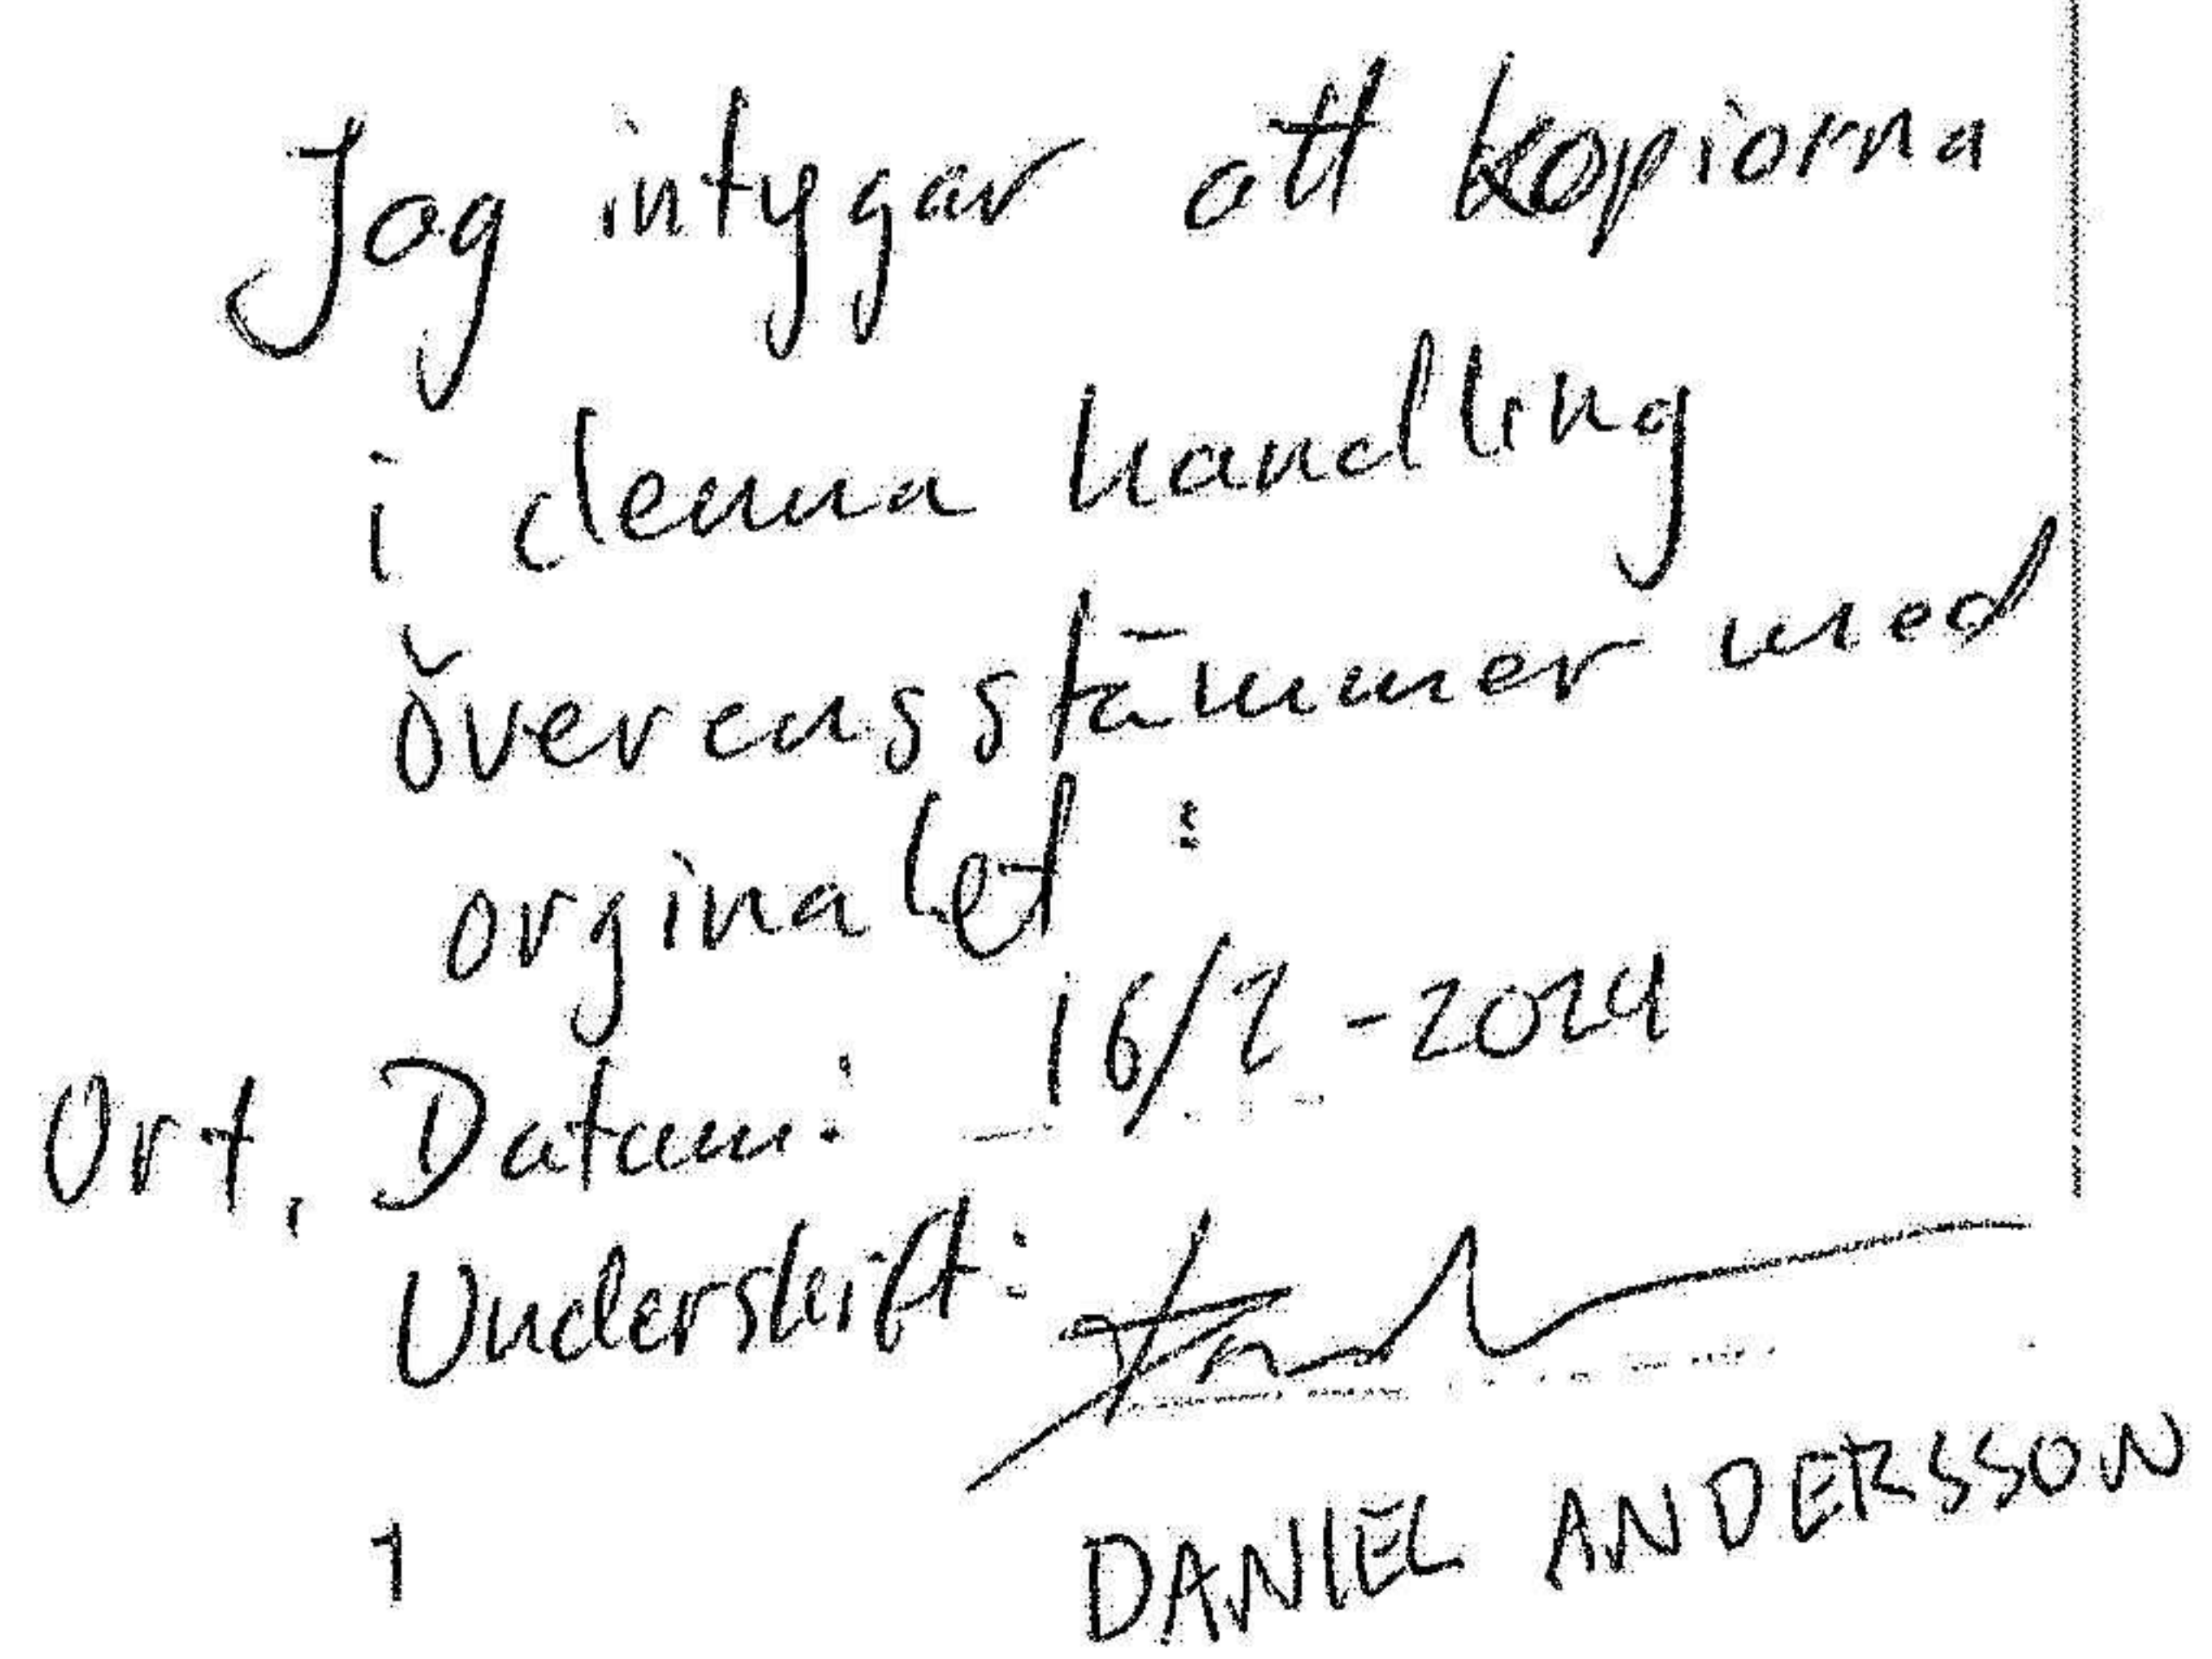 Jag intygar att kopiorna
i denna handling
överensstämmer med
orginalet:
Ort, Datum: 16/2-2024
Underskift:
DANIEL ANDERSSON
1